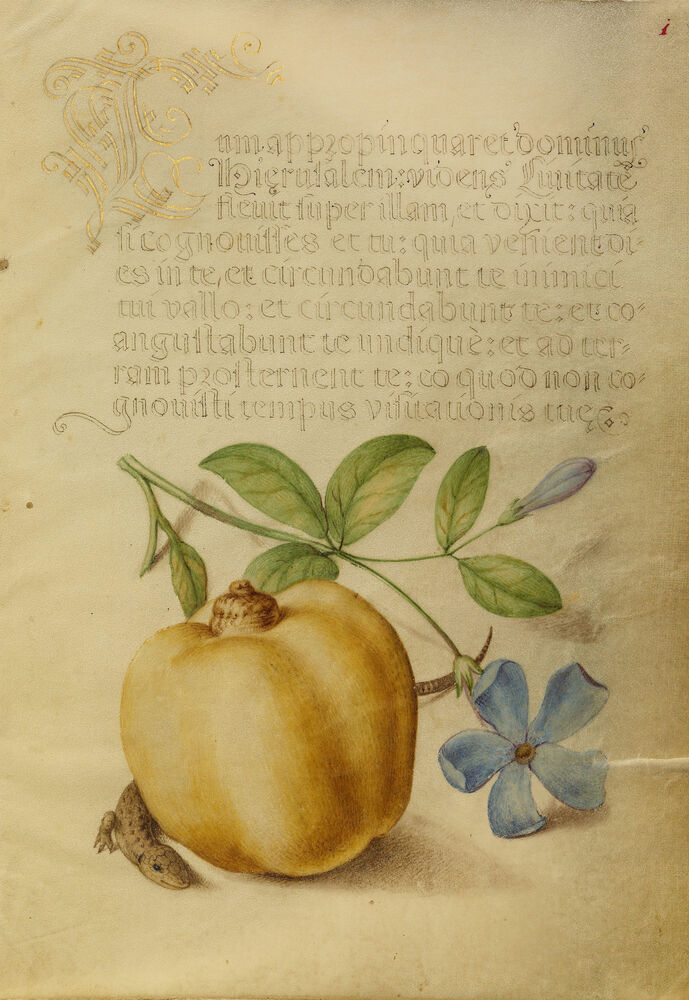 i
Cum appropinquaret dominus
Hierusalem: videns Civitatē
flevit super illam, et dixit: quia
si cognouisses et tu: quia venient di-
es in te, et circundabunt te inimici
tui vallo: et circundabunt te: et co-
angustabunt te undiquè: et ad ter-
ram prosternent te: eo quod non co-
gnouisti tempus visitationis tuę